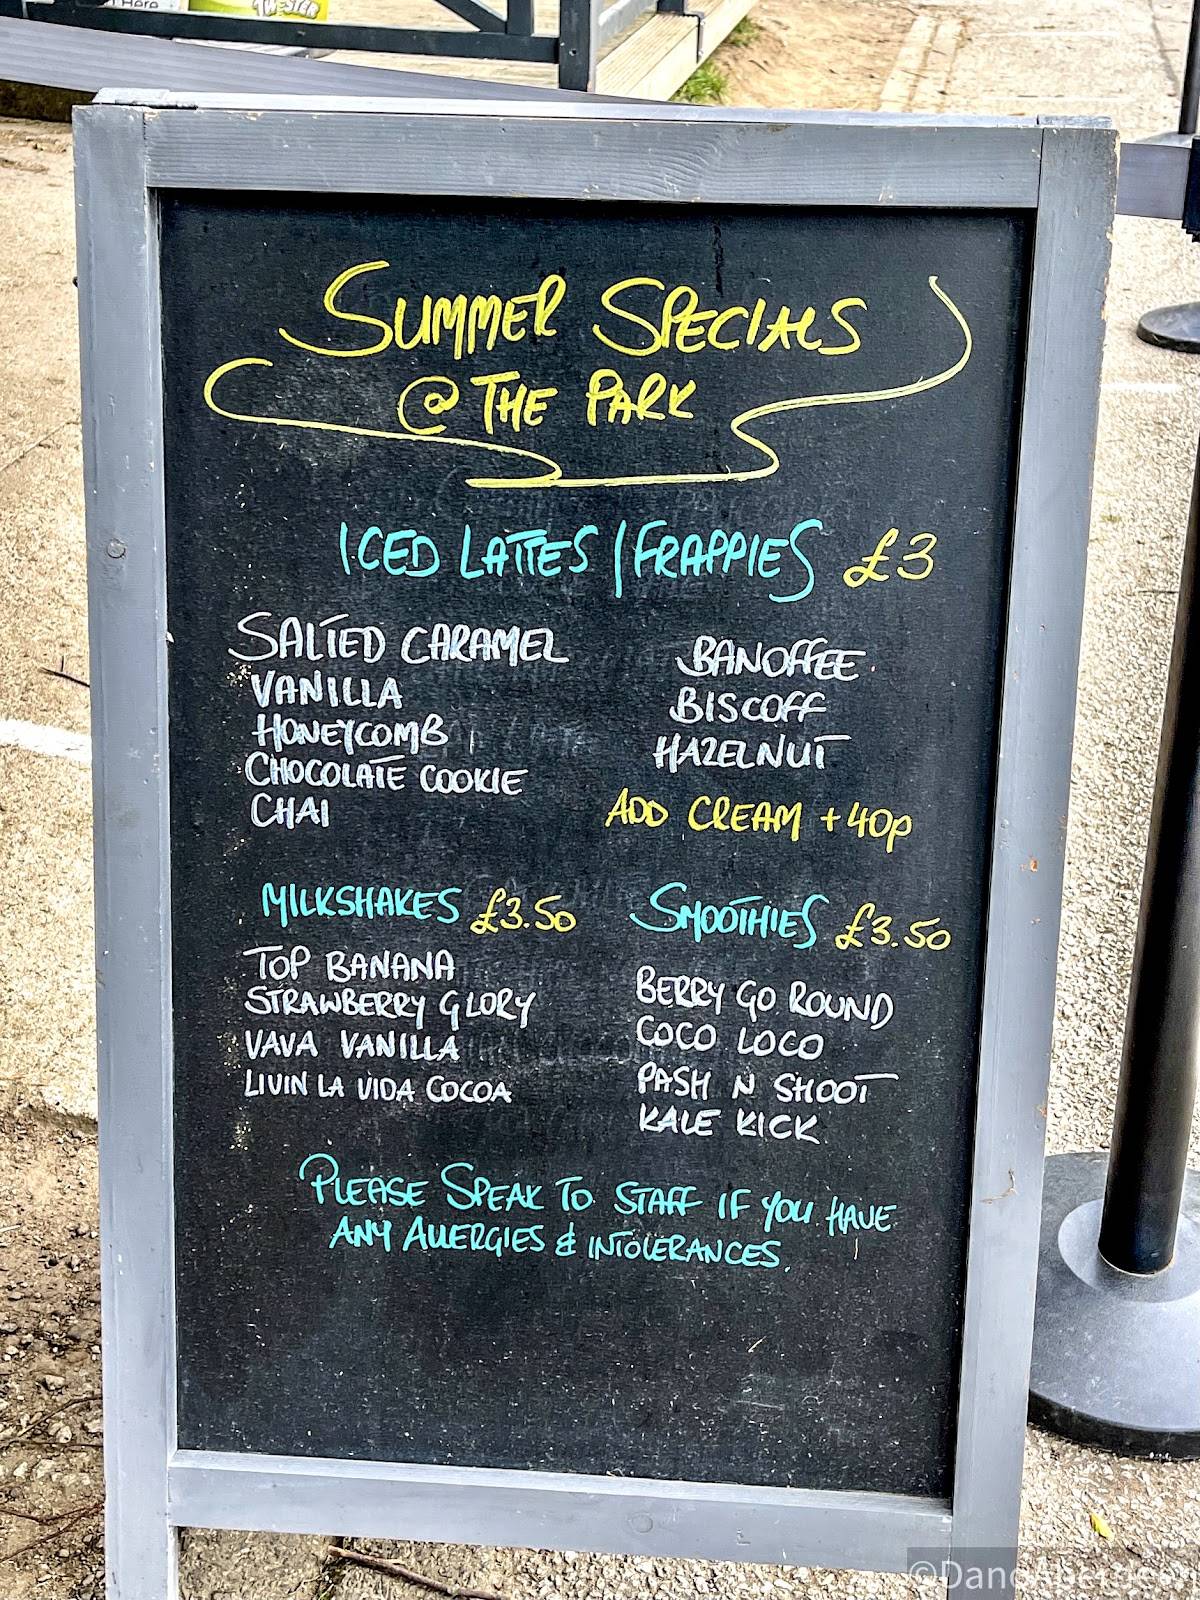 Here
TWISTER
SUMMER SPECIALS
@ THE PARK
ICED LATTES / FRAPPIES £3
SALTED CARAMEL
VANILLA
HONEYCOMB
CHOCOLATE COOKIE
CHAI
BANOFFEE
BISCOFF
HAZELNUT
ADD CREAM +40p
MILKSHAKES £3.50
TOP BANANA
STRAWBERRY GLORY
VAVA VANILLA
LIVIN LA VIDA COCOA
SMOOTHIES £3.50
BERRY GO ROUND
COCO LOCO
PASH N SHOOT
KALE KICK
PLEASE SPEAK TO STAFF IF YOU HAVE
ANY ALLERGIES & INTOLERANCES.